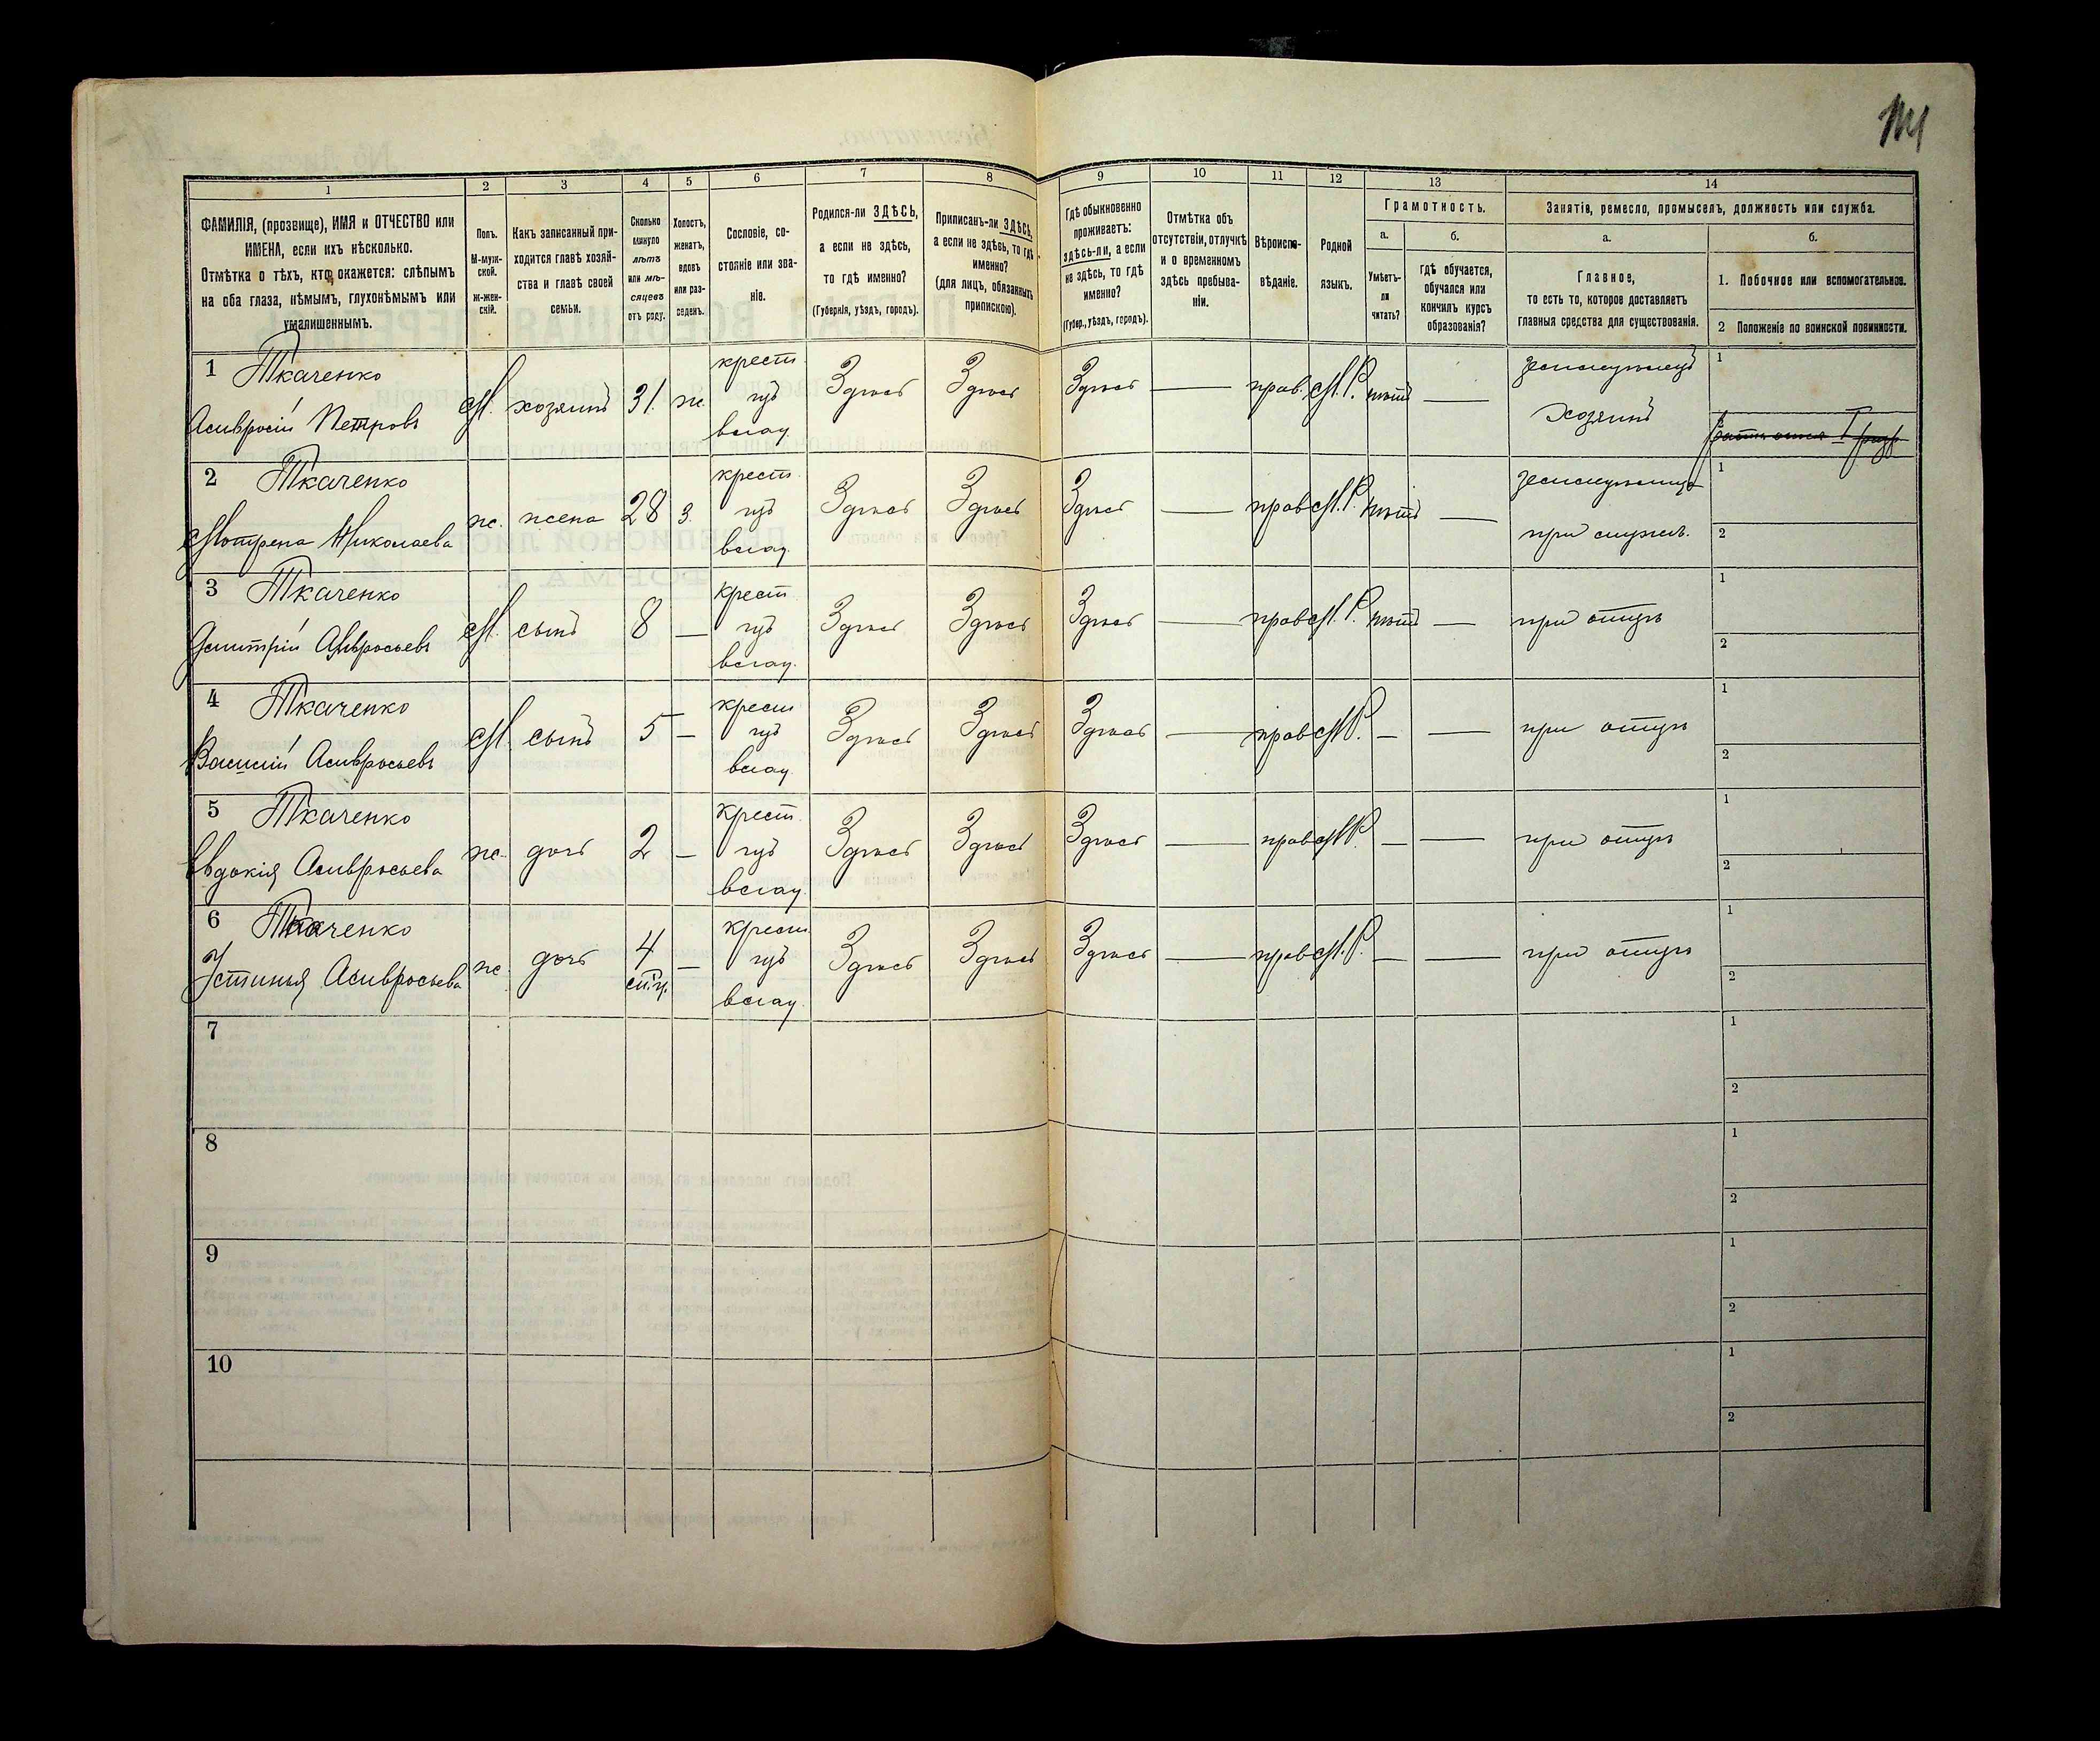 1
2
3
4
5
6
7
8
9
10
11
12
13
14
ФАМИЛІЯ, (прозвище), ИМЯ и ОТЧЕСТВО или
ИМЕНА, если ихъ нѣсколько.
Отмѣтка о тѣхъ, кто окажется: слѣпымъ
на оба глаза, нѣмымъ, глухонѣмымъ или
умалишеннымъ.
Полъ.
М-муж-
ской.
ж-жен-
скій.
Какъ записанный при-
ходится главѣ хозяй-
ства и главѣ своей
семьи.
Сколько
минуло
лѣтъ
или мѣ-
сяцевъ
отъ роду.
Холостъ,
женатъ,
вдовъ
или раз-
веденъ.
Сословіе, со-
стояніе или зва-
ніе.
Родился-ли ЗДѢСЬ,
а если не здѣсь,
то гдѣ именно?
(Губернія, уѣздъ, городъ).
Приписанъ-ли ЗДѢСЬ,
а если не здѣсь, то гдѣ
именно?
(для лицъ, обязанныхъ
припискою).
Гдѣ обыкновенно
проживаетъ:
здѣсь-ли, а если
не здѣсь, то гдѣ
именно?
(Губер., уѣздъ, городъ).
Отмѣтка объ
отсутствіи, отлучкѣ
и о временномъ
здѣсь пребыва-
ніи.
Вѣроиспо-
вѣданіе.
Родной
языкъ.
Грамотность.
а.
Умѣетъ-
ли
читать?
б.
гдѣ обучается,
обучался или
кончилъ курсъ
образованія?
Занятія, ремесло, промыселъ, должность или служба.
а.
Главное,
то есть то, которое доставляетъ
главныя средства для существованія.
б.
1. Побочное или вспомогательное.
2 Положеніе по воинской повинности.
1 Ткаченко
Амвросій Петровъ
М. хозяинъ 31. ж.
крест.
влад.
Здѣсь Здѣсь Здѣсь — прав. М.Р. нѣтъ —
хозяинъ
1
2 Ткаченко
Мотрена Николаева
ж. жена 28 з.
крест.
влад.
Здѣсь Здѣсь Здѣсь — прав М.Р. нѣтъ —
при мужѣ.
1
2
3 Ткаченко
Дмитрій Амвросьевъ
М. сынъ 8 —
крест
влад.
Здѣсь Здѣсь Здѣсь — прав М.Р. нѣтъ — при отцѣ
1
2
4 Ткаченко
Василій Амвросьевъ
М. сынъ 5 —
крест
влад.
Здѣсь Здѣсь Здѣсь — прав М.Р. — — при отцѣ
1
2
5 Ткаченко
Евдокія Амвросьева
ж. дочь 2 —
крест.
влад.
Здѣсь Здѣсь Здѣсь — прав М.Р. — — при отцѣ
1
2
6 Ткаченко
Устинья Амвросьева
ж. дочь 4 —
крест.
влад.
Здѣсь Здѣсь Здѣсь — прав М.Р. — — при отцѣ
1
2
7
1
2
8
1
2
9
1
2
10
1
2